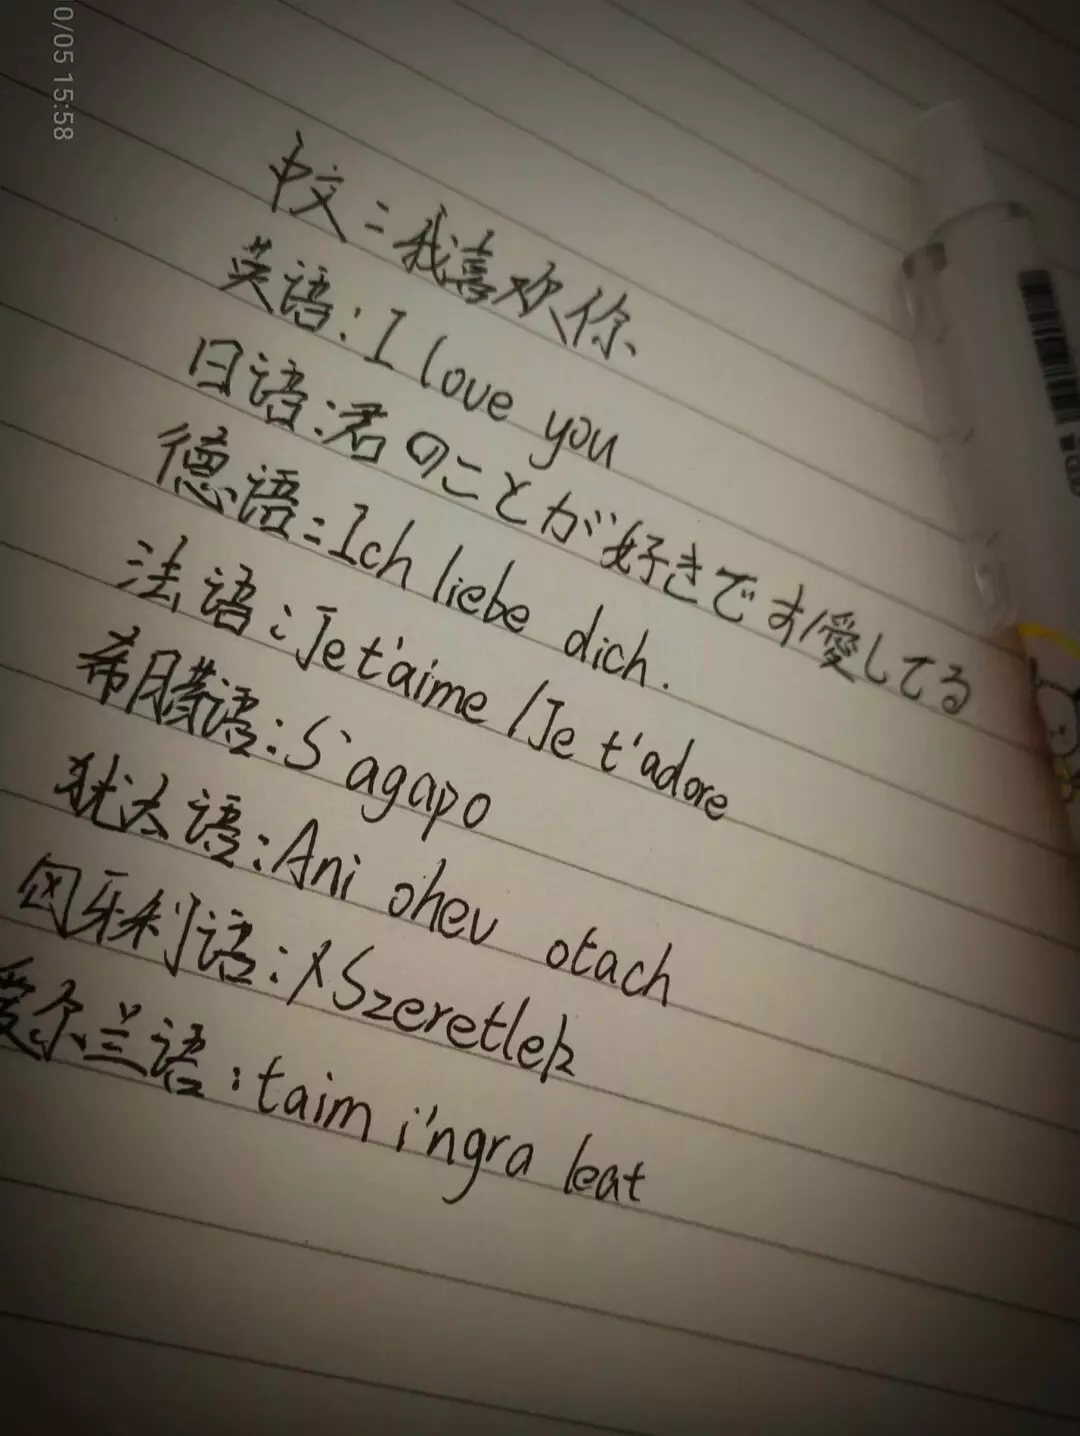 0/05 15:58
中文:我喜欢你
英语:I love you
日语:君のことが好きです/愛してる
德语:Ich liebe dich.
法语:Je t'aime /Je t'adore
希腊语:S'agapo
犹太语:Ani ohev otach
匈牙利语:Szeretlek
爱尔兰语:taim i'ngra leat